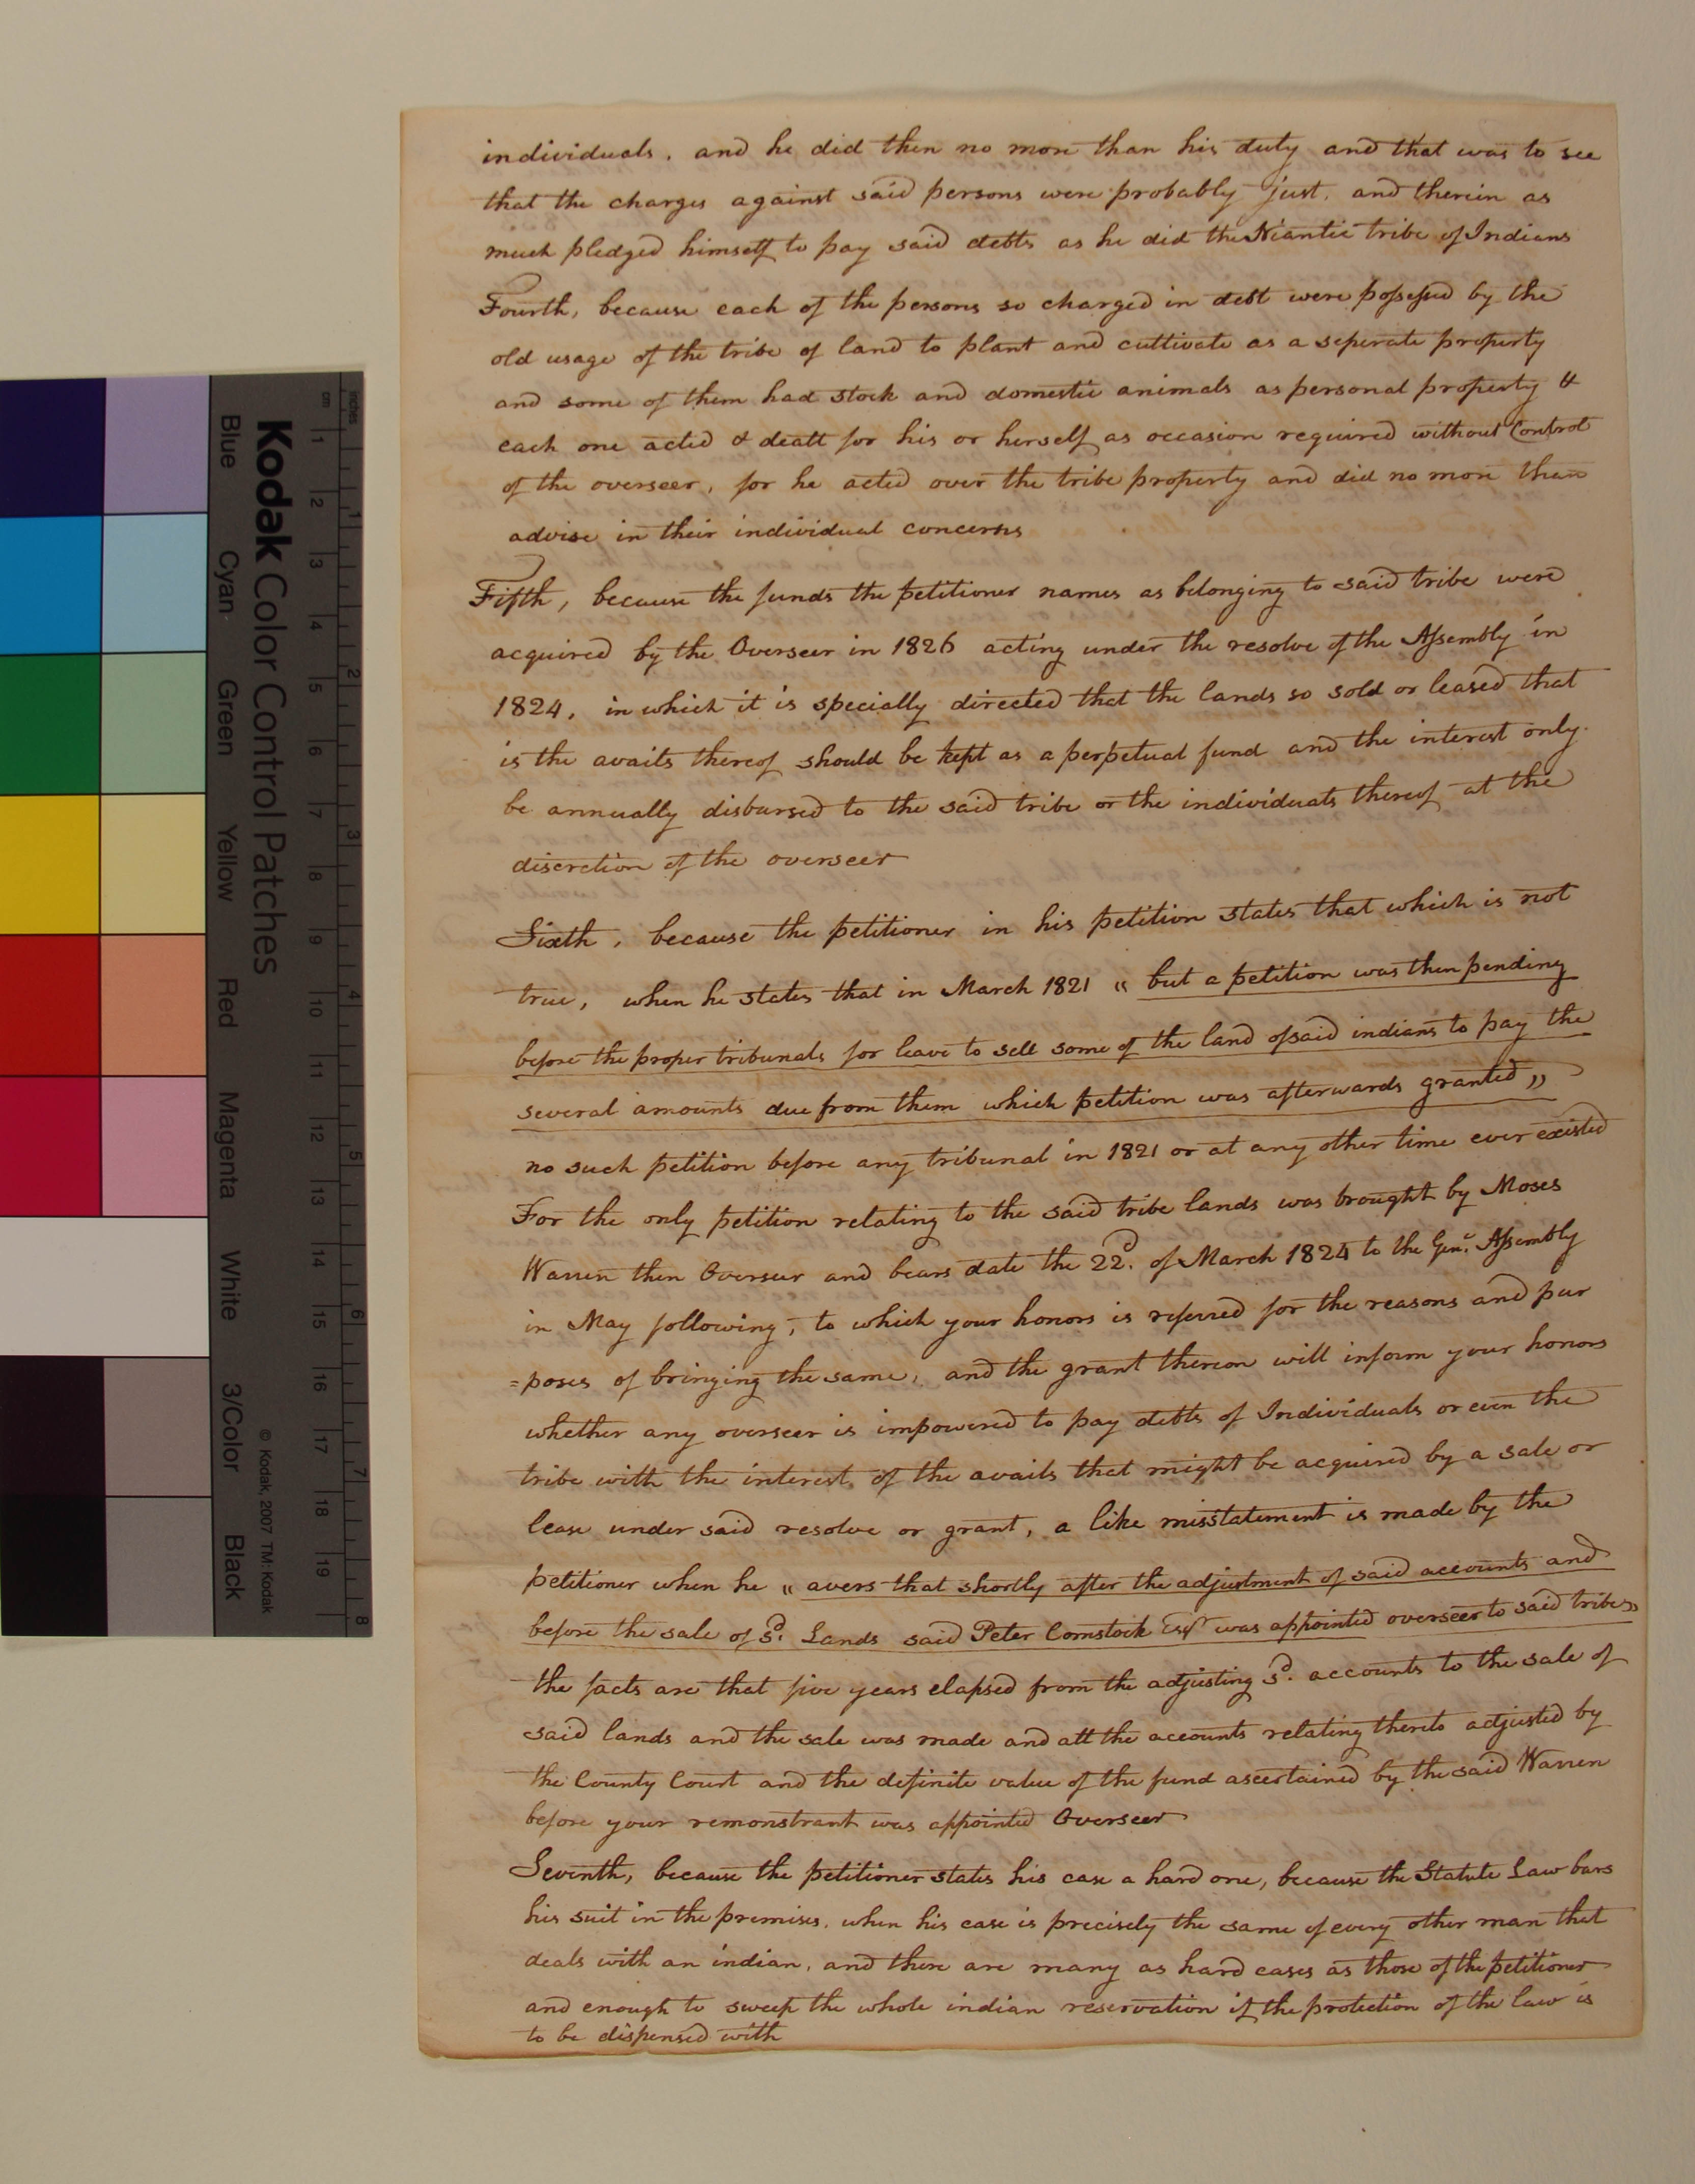 individuals, and he did then no more than his duty and that was to see
that the charges against said persons were probably just, and therein as
much pledged himself to pay said debts as he did the Niantic tribe of Indians
Fourth, because each of the persons so charged in debt were possessed by the
old usage of the tribe of land to plant and cultivate as a seperate property
and some of them had stock and domestic animals as personal property &
each one acted & dealt for his or herself as occasion required without Control
of the overseer, for he acted over the tribe property and did no more than
advise in their individual concerns
Fifth, because the funds the petitioner names as belonging to said tribe were
acquired by the Overseer in 1826 acting under the resolve of the Assembly in
1824, in which it is specially directed that the lands so sold or leased that
is the avails thereof should be kept as a perpetual fund and the interest only
be annually disbursed to the said tribe or the individuals thereof at the
discretion of the overseer
Sixth, because the petitioner in his petition states that which is not
true, when he states that in March 1821 „ but a petition was then pending
before the proper tribunals for leave to sell some of the land of said indians to pay the
several amounts due from them which petition was afterwards granted „
no such petition before any tribunal in 1821 or at any other time ever existed
For the only petition relating to the said tribe lands was brought by Moses
Warren then Overseer and bears date the 22d. of March 1824 to the Genl. Assembly
in May following, to which your honors is referred for the reasons and pur
=poses of bringing the same, and the grant thereon will inform your honors
whether any overseer is impowered to pay debts of Individuals or even the
tribe with the interest of the avails that might be acquired by a sale or
lease under said resolve or grant, a like misstatement is made by the
petitioner when he „ avers that shortly after the adjustment of said accounts and
before the sale of sd. Lands said Peter Comstock Esqr was appointed overseer to said tribe „
the facts are that five years elapsed from the adjusting sd. accounts to the sale of
said lands and the sale was made and all the accounts relating thereto adjusted by
the County Court and the definite value of the fund ascertained by the said Warren
before your remonstrant was appointed Overseer
Seventh, because the petitioner states his case a hard one, because the Statute Law bars
his suit in the premises, when his case is precisely the same of every other man that
deals with an indian, and there are many as hard cases as those of the petitioner
and enough to sweep the whole indian reservation if the protection of the law is
to be dispensed with
Kodak Color Control Patches
Blue Cyan Green Yellow Red Magenta White 3/Color Black
© Kodak, 2007 TM: Kodak
inches 1 2 3 4 5 6 7 8
cm 1 2 3 4 5 6 7 8 9 10 11 12 13 14 15 16 17 18 19